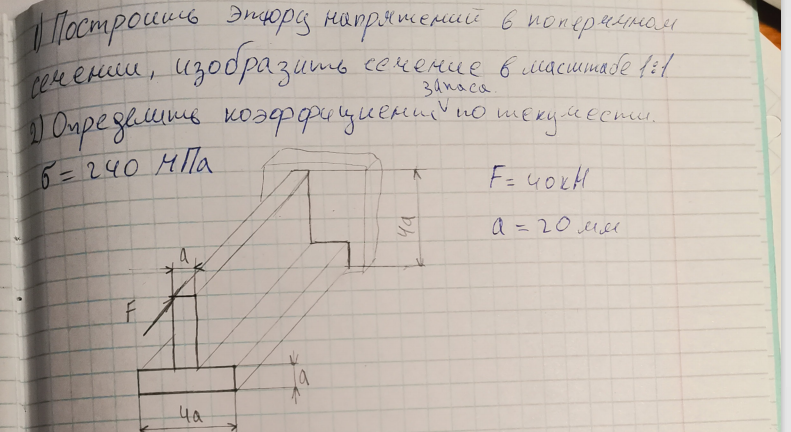 1) Построить эпюру напряжений в поперечном
сечении, изобразить сечение в масштабе 1:1
запаса
2) Определить коэффициент по текучести.
б = 240 МПа
F = 40 кН
a = 20 мм
4a
a
F
a
4a